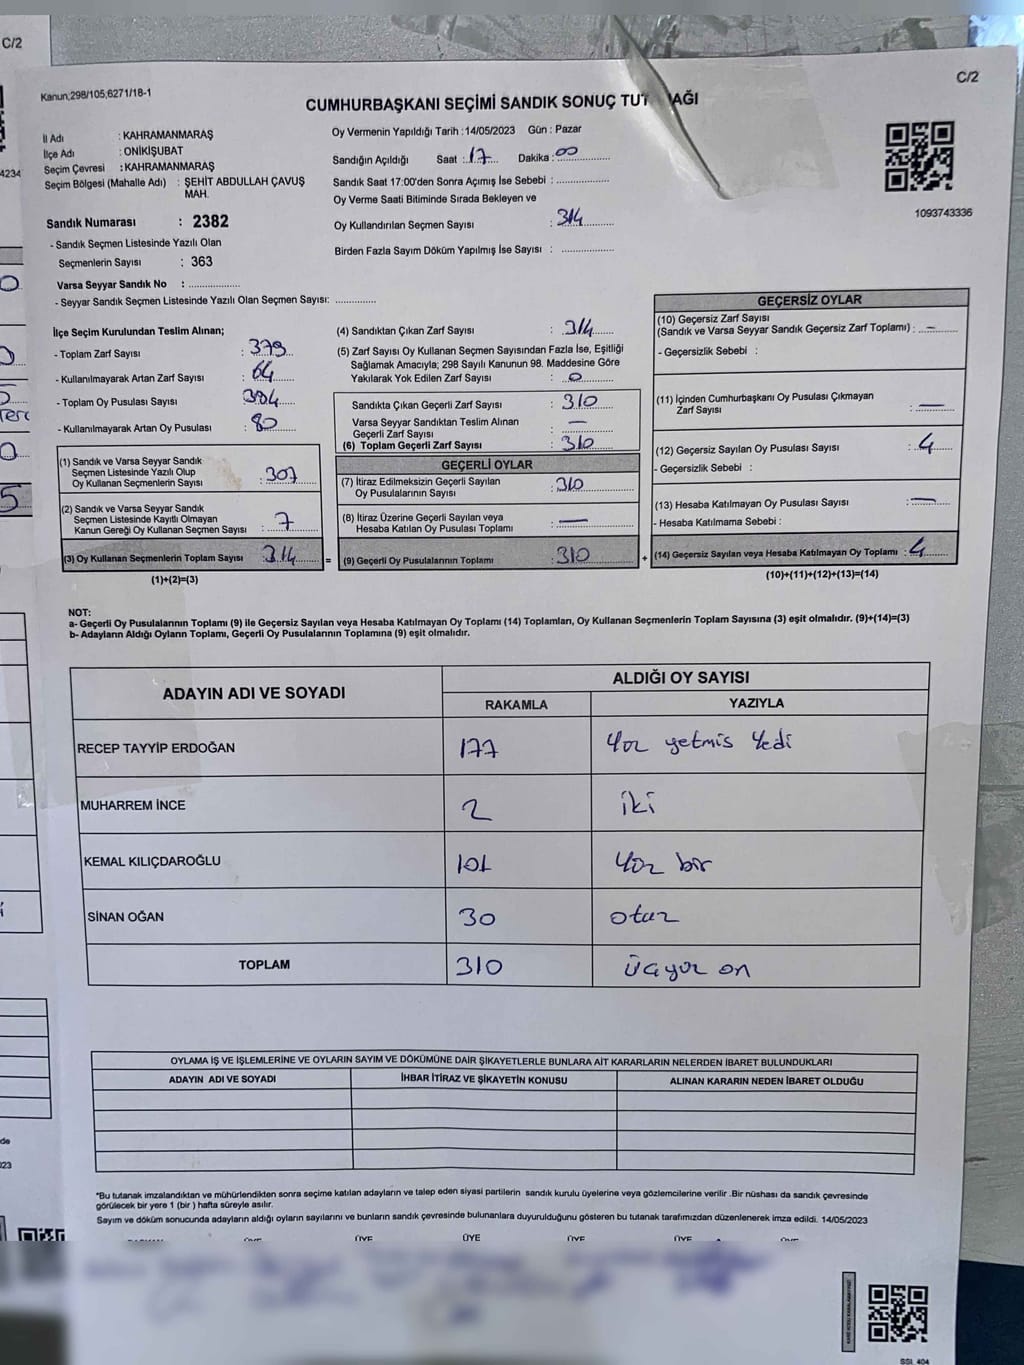 C/2
Kanun;298/105,6271/18-1
C/2
CUMHURBAŞKANI SEÇİMİ SANDIK SONUÇ TUT AĞI
İl Adı : KAHRAMANMARAŞ
İlçe Adı : ONİKİŞUBAT
Seçim Çevresi : KAHRAMANMARAŞ
Seçim Bölgesi (Mahalle Adı) : ŞEHİT ABDULLAH ÇAVUŞ
MAH.
Sandık Numarası : 2382
- Sandık Seçmen Listesinde Yazılı Olan
Seçmenlerin Sayısı : 363
Varsa Seyyar Sandık No : ..................
- Seyyar Sandık Seçmen Listesinde Yazılı Olan Seçmen Sayısı: ..............
Oy Vermenin Yapıldığı Tarih : 14/05/2023 Gün : Pazar
Sandığın Açıldığı Saat : 17 Dakika : 00
Sandık Saat 17:00'den Sonra Açımış İse Sebebi : ..................
Oy Verme Saati Bitiminde Sırada Bekleyen ve
Oy Kullandırılan Seçmen Sayısı : 314
Birden Fazla Sayım Döküm Yapılmış İse Sayısı : ..................
1093743336
4234
İlçe Seçim Kurulundan Teslim Alınan;
- Toplam Zarf Sayısı : 379
- Kullanılmayarak Artan Zarf Sayısı : 64
- Toplam Oy Pusulası Sayısı : 394
- Kullanılmayarak Artan Oy Pusulası : 80
(1) Sandık ve Varsa Seyyar Sandık
Seçmen Listesinde Yazılı Olup
Oy Kullanan Seçmenlerin Sayısı : 307
(2) Sandık ve Varsa Seyyar Sandık
Seçmen Listesinde Kayıtlı Olmayan
Kanun Gereği Oy Kullanan Seçmen Sayısı : 7
(3) Oy Kullanan Seçmenlerin Toplam Sayısı 314 =
(1)+(2)=(3)
(4) Sandıktan Çıkan Zarf Sayısı : 314
(5) Zarf Sayısı Oy Kullanan Seçmen Sayısından Fazla İse, Eşitliği
Sağlamak Amacıyla; 298 Sayılı Kanunun 98. Maddesine Göre
Yakılarak Yok Edilen Zarf Sayısı : 0
Sandıkta Çıkan Geçerli Zarf Sayısı : 310
Varsa Seyyar Sandıktan Teslim Alınan
Geçerli Zarf Sayısı : —
(6) Toplam Geçerli Zarf Sayısı : 310
GEÇERLİ OYLAR
(7) İtiraz Edilmeksizin Geçerli Sayılan
Oy Pusulalarının Sayısı : 310
(8) İtiraz Üzerine Geçerli Sayılan veya
Hesaba Katılan Oy Pusulası Toplamı : —
(9) Geçerli Oy Pusulalarının Toplamı : 310 +
GEÇERSİZ OYLAR
(10) Geçersiz Zarf Sayısı
(Sandık ve Varsa Seyyar Sandık Geçersiz Zarf Toplamı) : —
- Geçersizlik Sebebi :
(11) İçinden Cumhurbaşkanı Oy Pusulası Çıkmayan
Zarf Sayısı : —
(12) Geçersiz Sayılan Oy Pusulası Sayısı : 4
- Geçersizlik Sebebi :
(13) Hesaba Katılmayan Oy Pusulası Sayısı : —
- Hesaba Katılmama Sebebi :
(14) Geçersiz Sayılan veya Hesaba Katılmayan Oy Toplamı : 4
(10)+(11)+(12)+(13)=(14)
NOT:
a- Geçerli Oy Pusulalarının Toplamı (9) ile Geçersiz Sayılan veya Hesaba Katılmayan Oy Toplamı (14) Toplamları, Oy Kullanan Seçmenlerin Toplam Sayısına (3) eşit olmalıdır. (9)+(14)=(3)
b- Adayların Aldığı Oyların Toplamı, Geçerli Oy Pusulalarının Toplamına (9) eşit olmalıdır.
ADAYIN ADI VE SOYADI
ALDIĞI OY SAYISI
RAKAMLA YAZIYLA
RECEP TAYYİP ERDOĞAN 177 Yüz yetmis Yedi
MUHARREM İNCE 2 iki
KEMAL KILIÇDAROĞLU 101 Yüz bir
SİNAN OĞAN 30 otuz
TOPLAM 310 Üçyüz on
OYLAMA İŞ VE İŞLEMLERİNE VE OYLARIN SAYIM VE DÖKÜMÜNE DAİR ŞİKAYETLERLE BUNLARA AİT KARARLARIN NELERDEN İBARET BULUNDUKLARI
ADAYIN ADI VE SOYADI İHBAR İTİRAZ VE ŞİKAYETİN KONUSU ALINAN KARARIN NEDEN İBARET OLDUĞU
*Bu tutanak imzalandıktan ve mühürlendikten sonra seçime katılan adayların ve talep eden siyasi partilerin sandık kurulu üyelerine veya gözlemcilerine verilir .Bir nüshası da sandık çevresinde
görülecek bir yere 1 (bir ) hafta süreyle asılır.
Sayım ve döküm sonucunda adayların aldığı oyların sayılarını ve bunların sandık çevresinde bulunanlara duyurulduğunu gösteren bu tutanak tarafımızdan düzenlenerek imza edildi. 14/05/2023
ÜYE ÜYE ÜYE ÜYE ÜYE
SSI_404